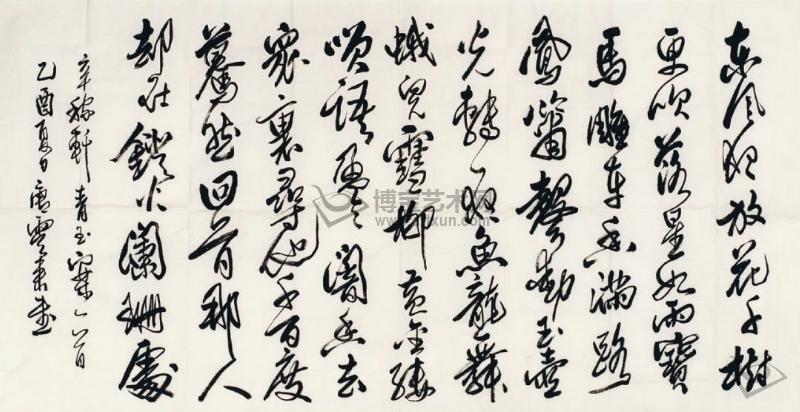 東風夜放花千樹
更吹落星如雨寶
馬雕車香滿路
鳳簫聲動玉壺
光轉一夜魚龍舞
蛾兒雪柳黃金縷
笑語盈々闇香去
眾裏尋他千百度
驀然回首那人
却在鐙火闌珊處
辛稼軒青玉案一首
乙酉夏日唐雲書
博宝艺术网